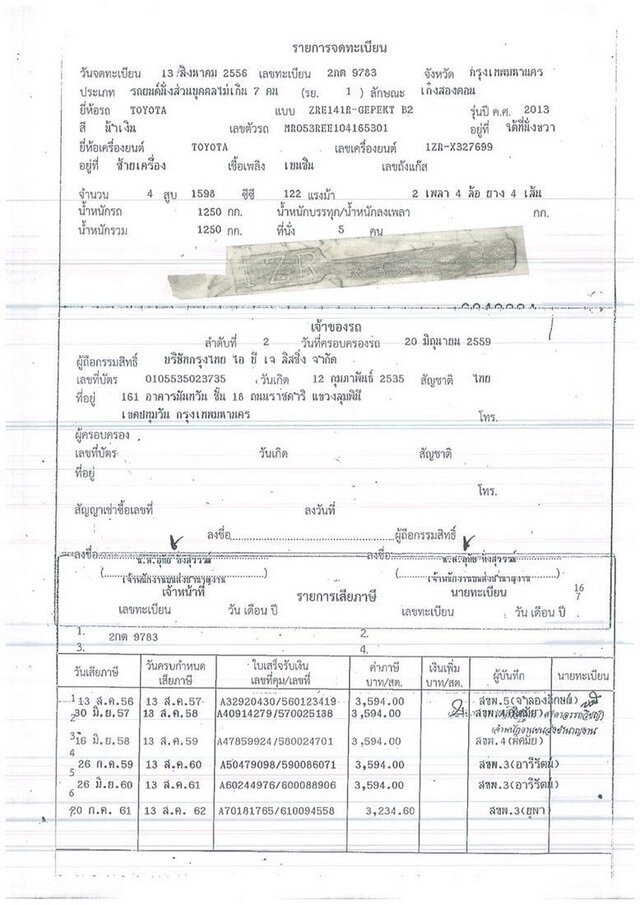 รายการจดทะเบียน
วันจดทะเบียน 13 สิงหาคม 2556 เลขทะเบียน 2กต 9783 จังหวัด กรุงเทพมหานคร
ประเภท รถยนต์นั่งส่วนบุคคลไม่เกิน 7 คน (รย. 1 ) ลักษณะ เก๋งสองตอน
ยี่ห้อรถ TOYOTA แบบ ZRE141R-GEPEKT B2 รุ่นปี ค.ศ. 2013
สี น้ำเงิน เลขตัวรถ MR053REE104165301 อยู่ที่ ใต้ที่นั่งขวา
ยี่ห้อเครื่องยนต์ TOYOTA เลขเครื่องยนต์ 1ZR-X327699
อยู่ที่ ซ้ายเครื่อง เชื้อเพลิง เบนซิน เลขถังแก๊ส
จำนวน 4 สูบ 1598 ซีซี 122 แรงม้า 2 เพลา 4 ล้อ ยาง 4 เส้น
น้ำหนักรถ 1250 กก. น้ำหนักบรรทุก/น้ำหนักลงเพลา กก.
น้ำหนักรวม 1250 กก. ที่นั่ง 5 คน
เจ้าของรถ
ลำดับที่ 2 วันที่ครอบครองรถ 20 มิถุนายน 2559
ผู้ถือกรรมสิทธิ์ บริษัทกรุงไทย ไอ บี เจ ลิสซิ่ง จำกัด
เลขที่บัตร 0105535023735 วันเกิด 12 กุมภาพันธ์ 2535 สัญชาติ ไทย
ที่อยู่ 161 อาคารนันทวัน ชั้น 18 ถนนราชดำริ แขวงลุมพินี
เขตปทุมวัน กรุงเทพมหานคร โทร.
ผู้ครอบครอง
เลขที่บัตร วันเกิด สัญชาติ
ที่อยู่
โทร.
สัญญาเช่าซื้อเลขที่ ลงวันที่
ลงชื่อ ผู้ถือกรรมสิทธิ์
ลงชื่อ ลงชื่อ
เจ้าพนักงานขนส่งชำนาญงาน เจ้าพนักงานขนส่งชำนาญงาน
เจ้าหน้าที่ รายการเสียภาษี นายทะเบียน 16
เลขทะเบียน วัน เดือน ปี เลขทะเบียน วัน เดือน ปี 7
1. 2กต 9783 2.
3. 4.
วันเสียภาษี วันครบกำหนดเสียภาษี ใบเสร็จรับเงินเลขที่คุม/เลขที่ ค่าภาษี บาท/สต. เงินเพิ่ม บาท/สต. ผู้บันทึก นายทะเบียน
1 13 ส.ค.56 13 ส.ค.57 A32920430/560123419 3,594.00 สขพ.5(จำลองลักษณ์)
2 30 มิ.ย.57 13 ส.ค.58 A40914279/570025138 3,594.00
เจ้าพนักงานขนส่งชำนาญงาน
3 16 มิ.ย.58 13 ส.ค.59 A47859924/580024701 3,594.00 สขพ.4(พิศมัย)
4 26 กค.59 13 ส.ค.60 A50479098/590086071 3,594.00 สขพ.3(อารีวัตน์)
5 26 มิ.ย.60 13 ส.ค.61 A60244976/600088906 3,594.00 สขพ.3(อารีวัตน์)
6 20 ก.ค. 61 13 ส.ค. 62 A70181765/610094558 3,234.60 สขพ.3(ยุพา)